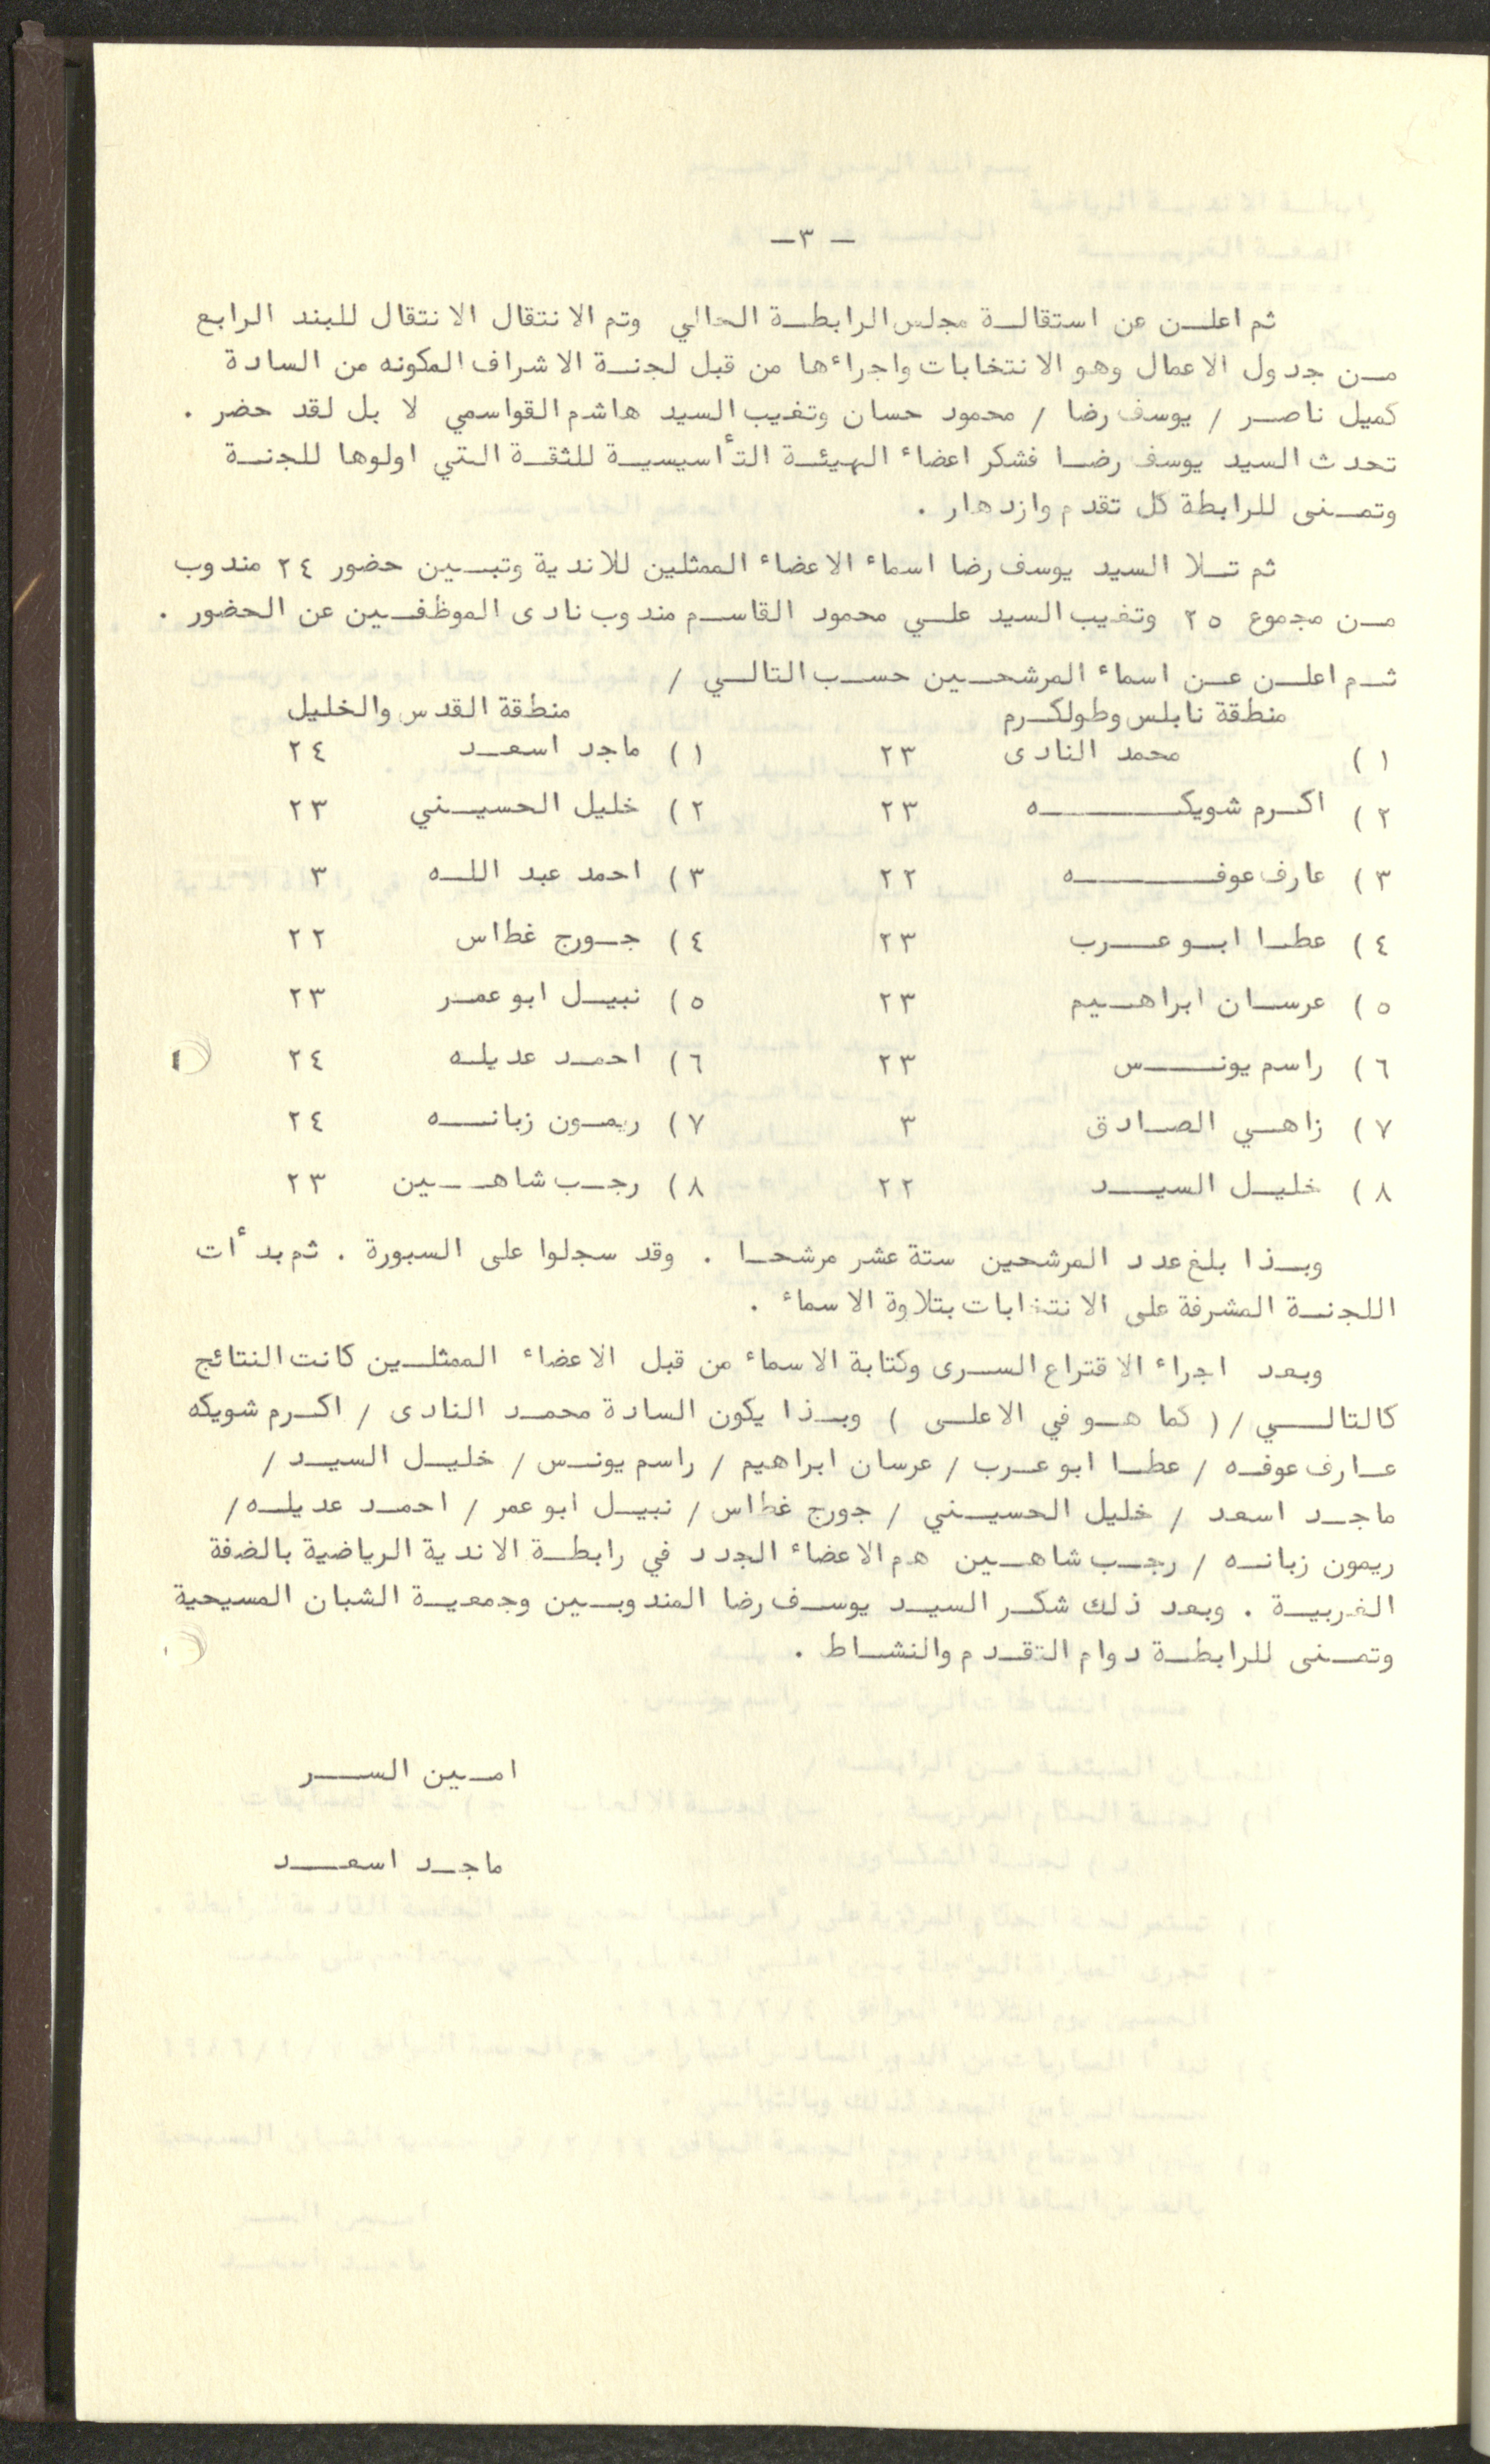 — ٣ —
ثم اعلن عن استقالة مجلس الرابطة الحالي وتم الانتقال الانتقال للبند الرابع
من جدول الاعمال وهو الانتخابات واجراءها من قبل لجنة الاشراف المكونه من السادة
كميل ناصر / يوسف رضا / محمود حسان وتغيب السيد هاشم القواسمي لا بل لقد حضر .
تحدث السيد يوسف رضا فشكر اعضاء الهيئة التأسيسية للثقة التي اولوها للجنة
وتمنى للرابطة كل تقدم وازدهار .
ثم تلا السيد يوسف رضا اسماء الاعضاء الممثلين للاندية وتبين حضور ٢٤ مندوب
من مجموع ٢٥ وتغيب السيد علي محمود القاسم مندوب نادى الموظفين عن الحضور .
ثم اعلن عن اسماء المرشحين حسب التالي /
منطقة نابلس وطولكرم منطقة القدس والخليل
١ ) محمد النادى ٢٣ ١ ) ماجد اسعد ٢٤
٢ ) اكرم شويكه ٢٣ ٢ ) خليل الحسيني ٢٣
٣ ) عارف عوفه ٢٢ ٣ ) احمد عبد الله ٣
٤ ) عطا ابو عرب ٢٣ ٤ ) جورج غطاس ٢٢
٥ ) عرسان ابراهيم ٢٣ ٥ ) نبيل ابو عمر ٢٣
٦ ) راسم يونس ٢٣ ٦ ) احمد عديله ٢٤
٧ ) زاهي الصادق ٣ ٧ ) ريمون زبانه ٢٤
٨ ) خليل السيد ٢٢ ٨ ) رجب شاهين ٢٣
وبذا بلغ عدد المرشحين ستة عشر مرشحا . وقد سجلوا على السبورة . ثم بدأت
اللجنة المشرفة على الانتخابات بتلاوة الاسماء .
وبعد اجراء الاقتراع السرى وكتابة الاسماء من قبل الاعضاء الممثلين كانت النتائج
كالتالي / ( كما هو في الاعلى ) وبذا يكون السادة محمد النادى / اكرم شويكه
عارف عوفه / عطا ابو عرب / عرسان ابراهيم / راسم يونس / خليل السيد /
ماجد اسعد / خليل الحسيني / جورج غطاس / نبيل ابو عمر / احمد عديله /
ريمون زبانه / رجب شاهين هم الاعضاء الجدد في رابطة الاندية الرياضية بالضفة
الغربية . وبعد ذلك شكر السيد يوسف رضا المندوبين وجمعية الشبان المسيحية
وتمنى للرابطة دوام التقدم والنشاط .
امين السر
ماجد اسعد